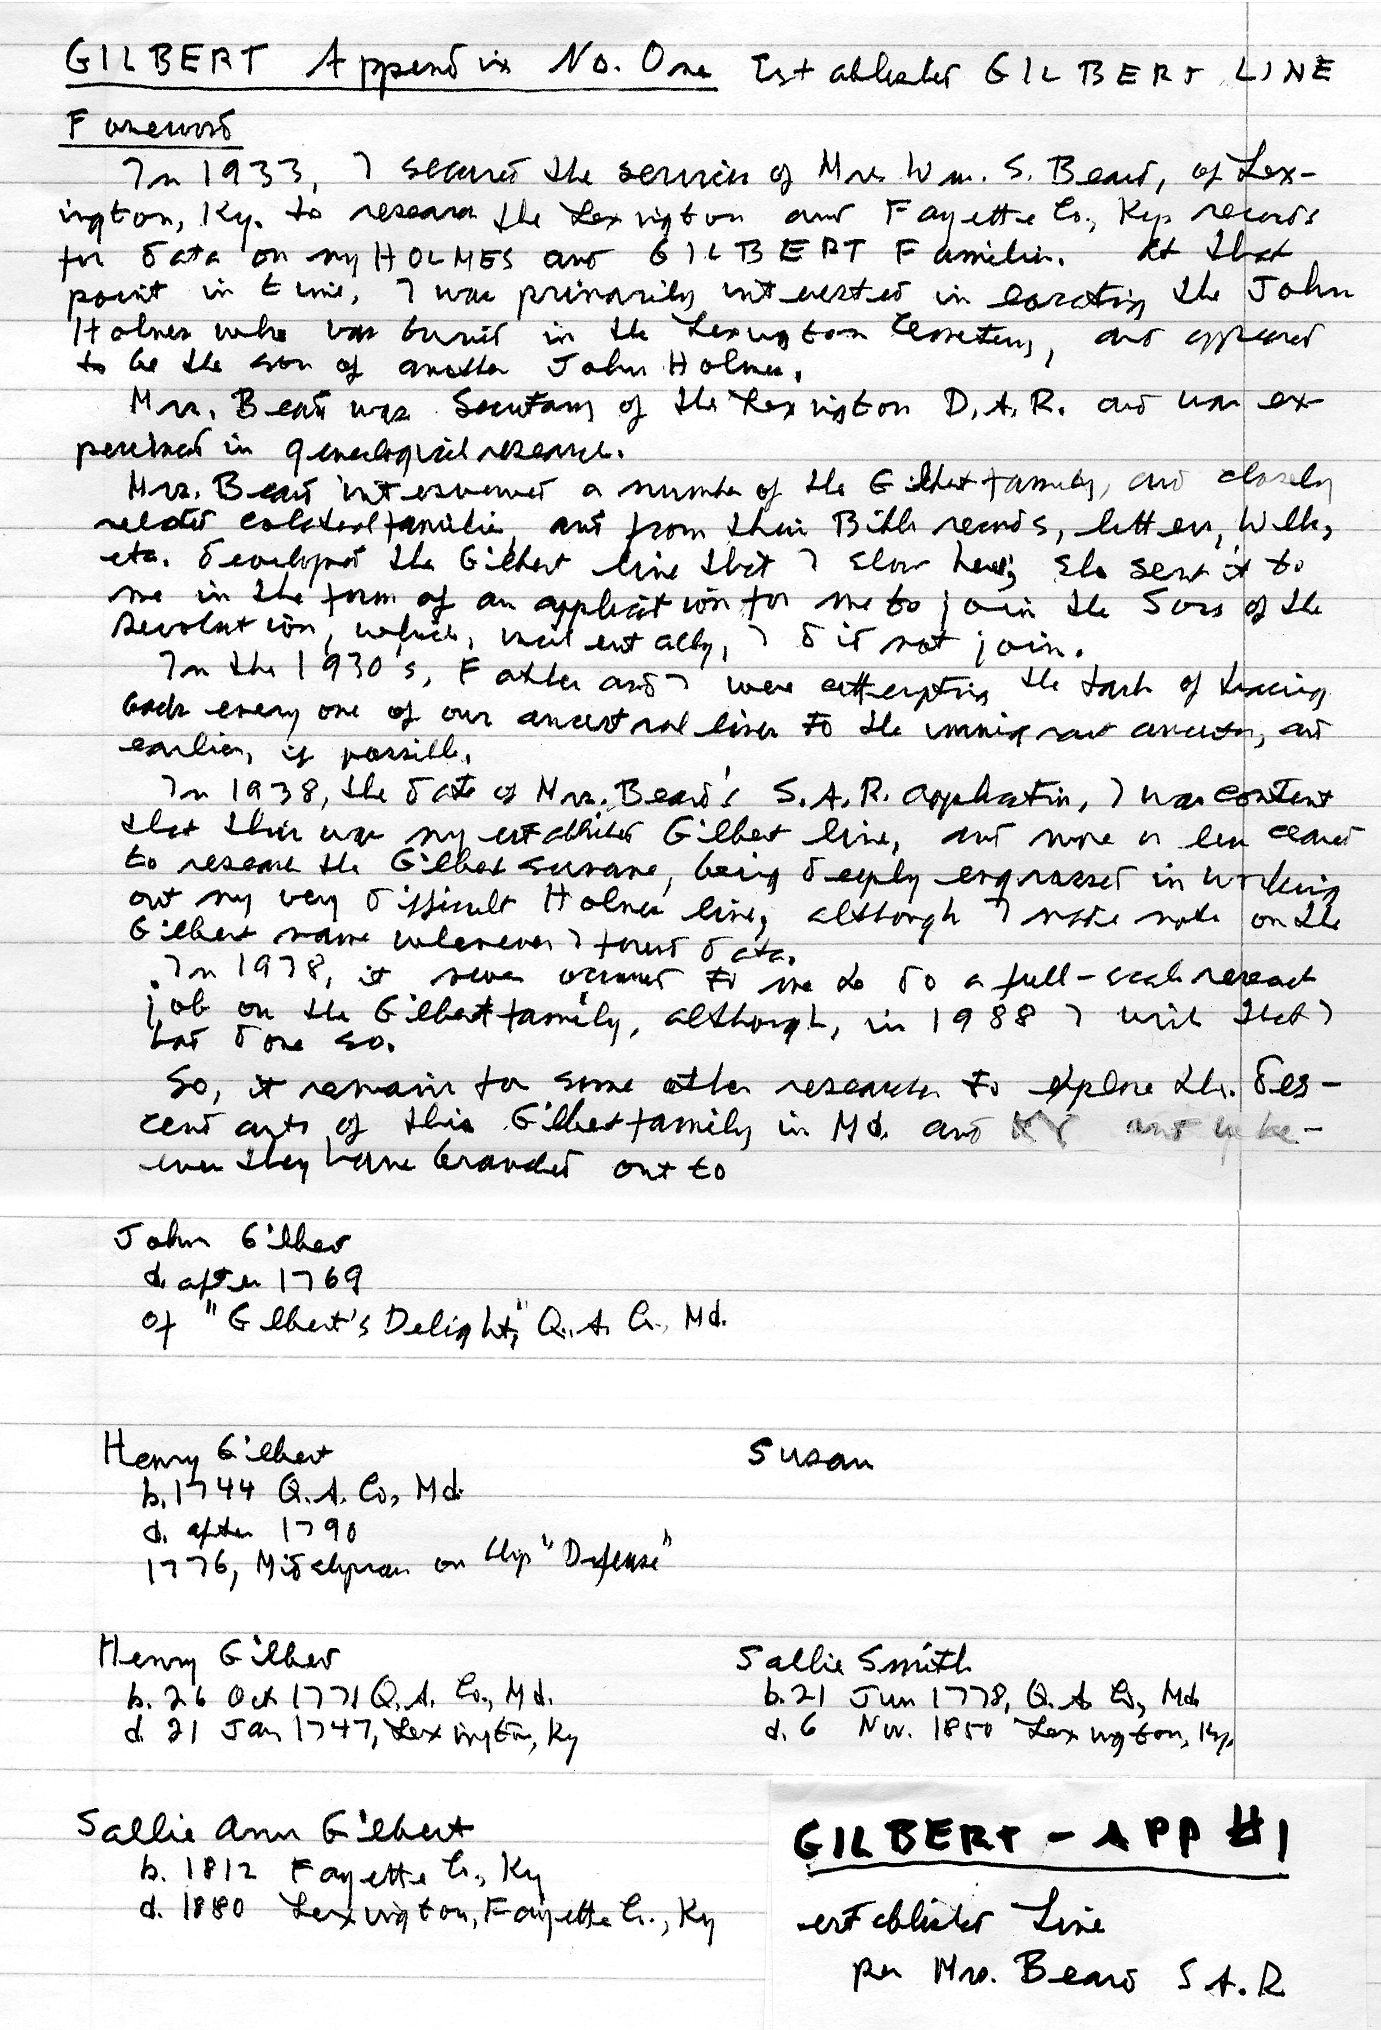 GILBERT Appendix No. One Established GILBERT LINE
Foreword
In 1933, I secured the services of Mrs. Wm. S. Beard, of Lex-
ington, Ky. to research the Lexington and Fayette Co., Ky. records
for data on my HOLMES and GILBERT Families. At that
point in time, I was primarily interested in locating the John
Holmes who was buried in the Lexington Cemetery, and appeared
to be the son of another John Holmes.
Mrs. Beard was Secretary of the Lexington D.A.R. and was ex-
perienced in genealogical research.
Mrs. Beard interviewed a number of the Gilbert family, and closely
related collateral families, and from their Bible records, letters, Wills,
etc. developed the Gilbert line that I show here; she sent it to
me in the form of an application for me to join the Sons of the
Revolution, which, incidentally, I did not join.
In the 1930's, Father and I were attempting the task of tracing
back every one of our ancestral lines to the immigrant ancestor, and
earlier, if possible.
In 1938, the date of Mrs. Beard's S.A.R. application, I was content
that this was my established Gilbert line, and more or less ceased
to research the Gilbert surname, being deeply engrossed in working
out my very difficult Holmes line, although I made note on the
Gilbert name whenever I found data.
In 1978, it never occurred to me to do a full-scale research
job on the Gilbert family, although, in 1988 I wish that I
had done so.
So, it remains for some other researcher to explore the des-
cendants of this Gilbert family in Md. and KY and where-
ever they have branched out to
John Gilbert
d. after 1769
of "Gilbert's Delight," Q.A. Co., Md.
Henry Gilbert Susan
b. 1744 Q.A. Co., Md.
d. after 1790
1776, Midshipman on ship "Defense"
Henry Gilbert Sallie Smith
b. 26 Oct 1771 Q.A. Co., Md. b. 21 Jun 1778, Q.A. Co., Md.
d. 21 Jan 1747, Lexington, Ky d. 6 Nov. 1850 Lexington, Ky.
Sallie Ann Gilbert
b. 1812 Fayette Co., Ky
d. 1880 Lexington, Fayette Co., Ky
GILBERT - APP #1
established Line
per Mrs. Beard S.A.R